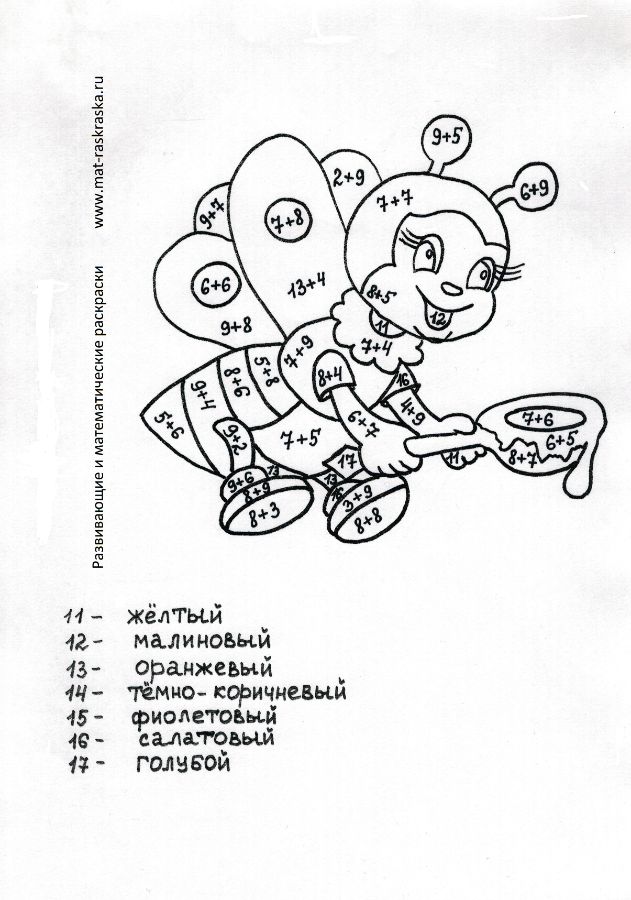 Развивающие и математические раскраски www.mat-raskraska.ru
9+5
2+9
6+9
7+7
9+7
7+8
6+6
13+4
8+5
12
11
9+8
7+4
7+9
5+8
8+6
8+4
16
9+4
4+9
5+6
6+7
7+6
9+2
7+5
6+5
17
11
8+7
13
9+6
13
8+9
16
3+9
8+3
8+8
11 - жёлтый
12 - малиновый
13 - оранжевый
14 - тёмно-коричневый
15 - фиолетовый
16 - салатовый
17 - голубой